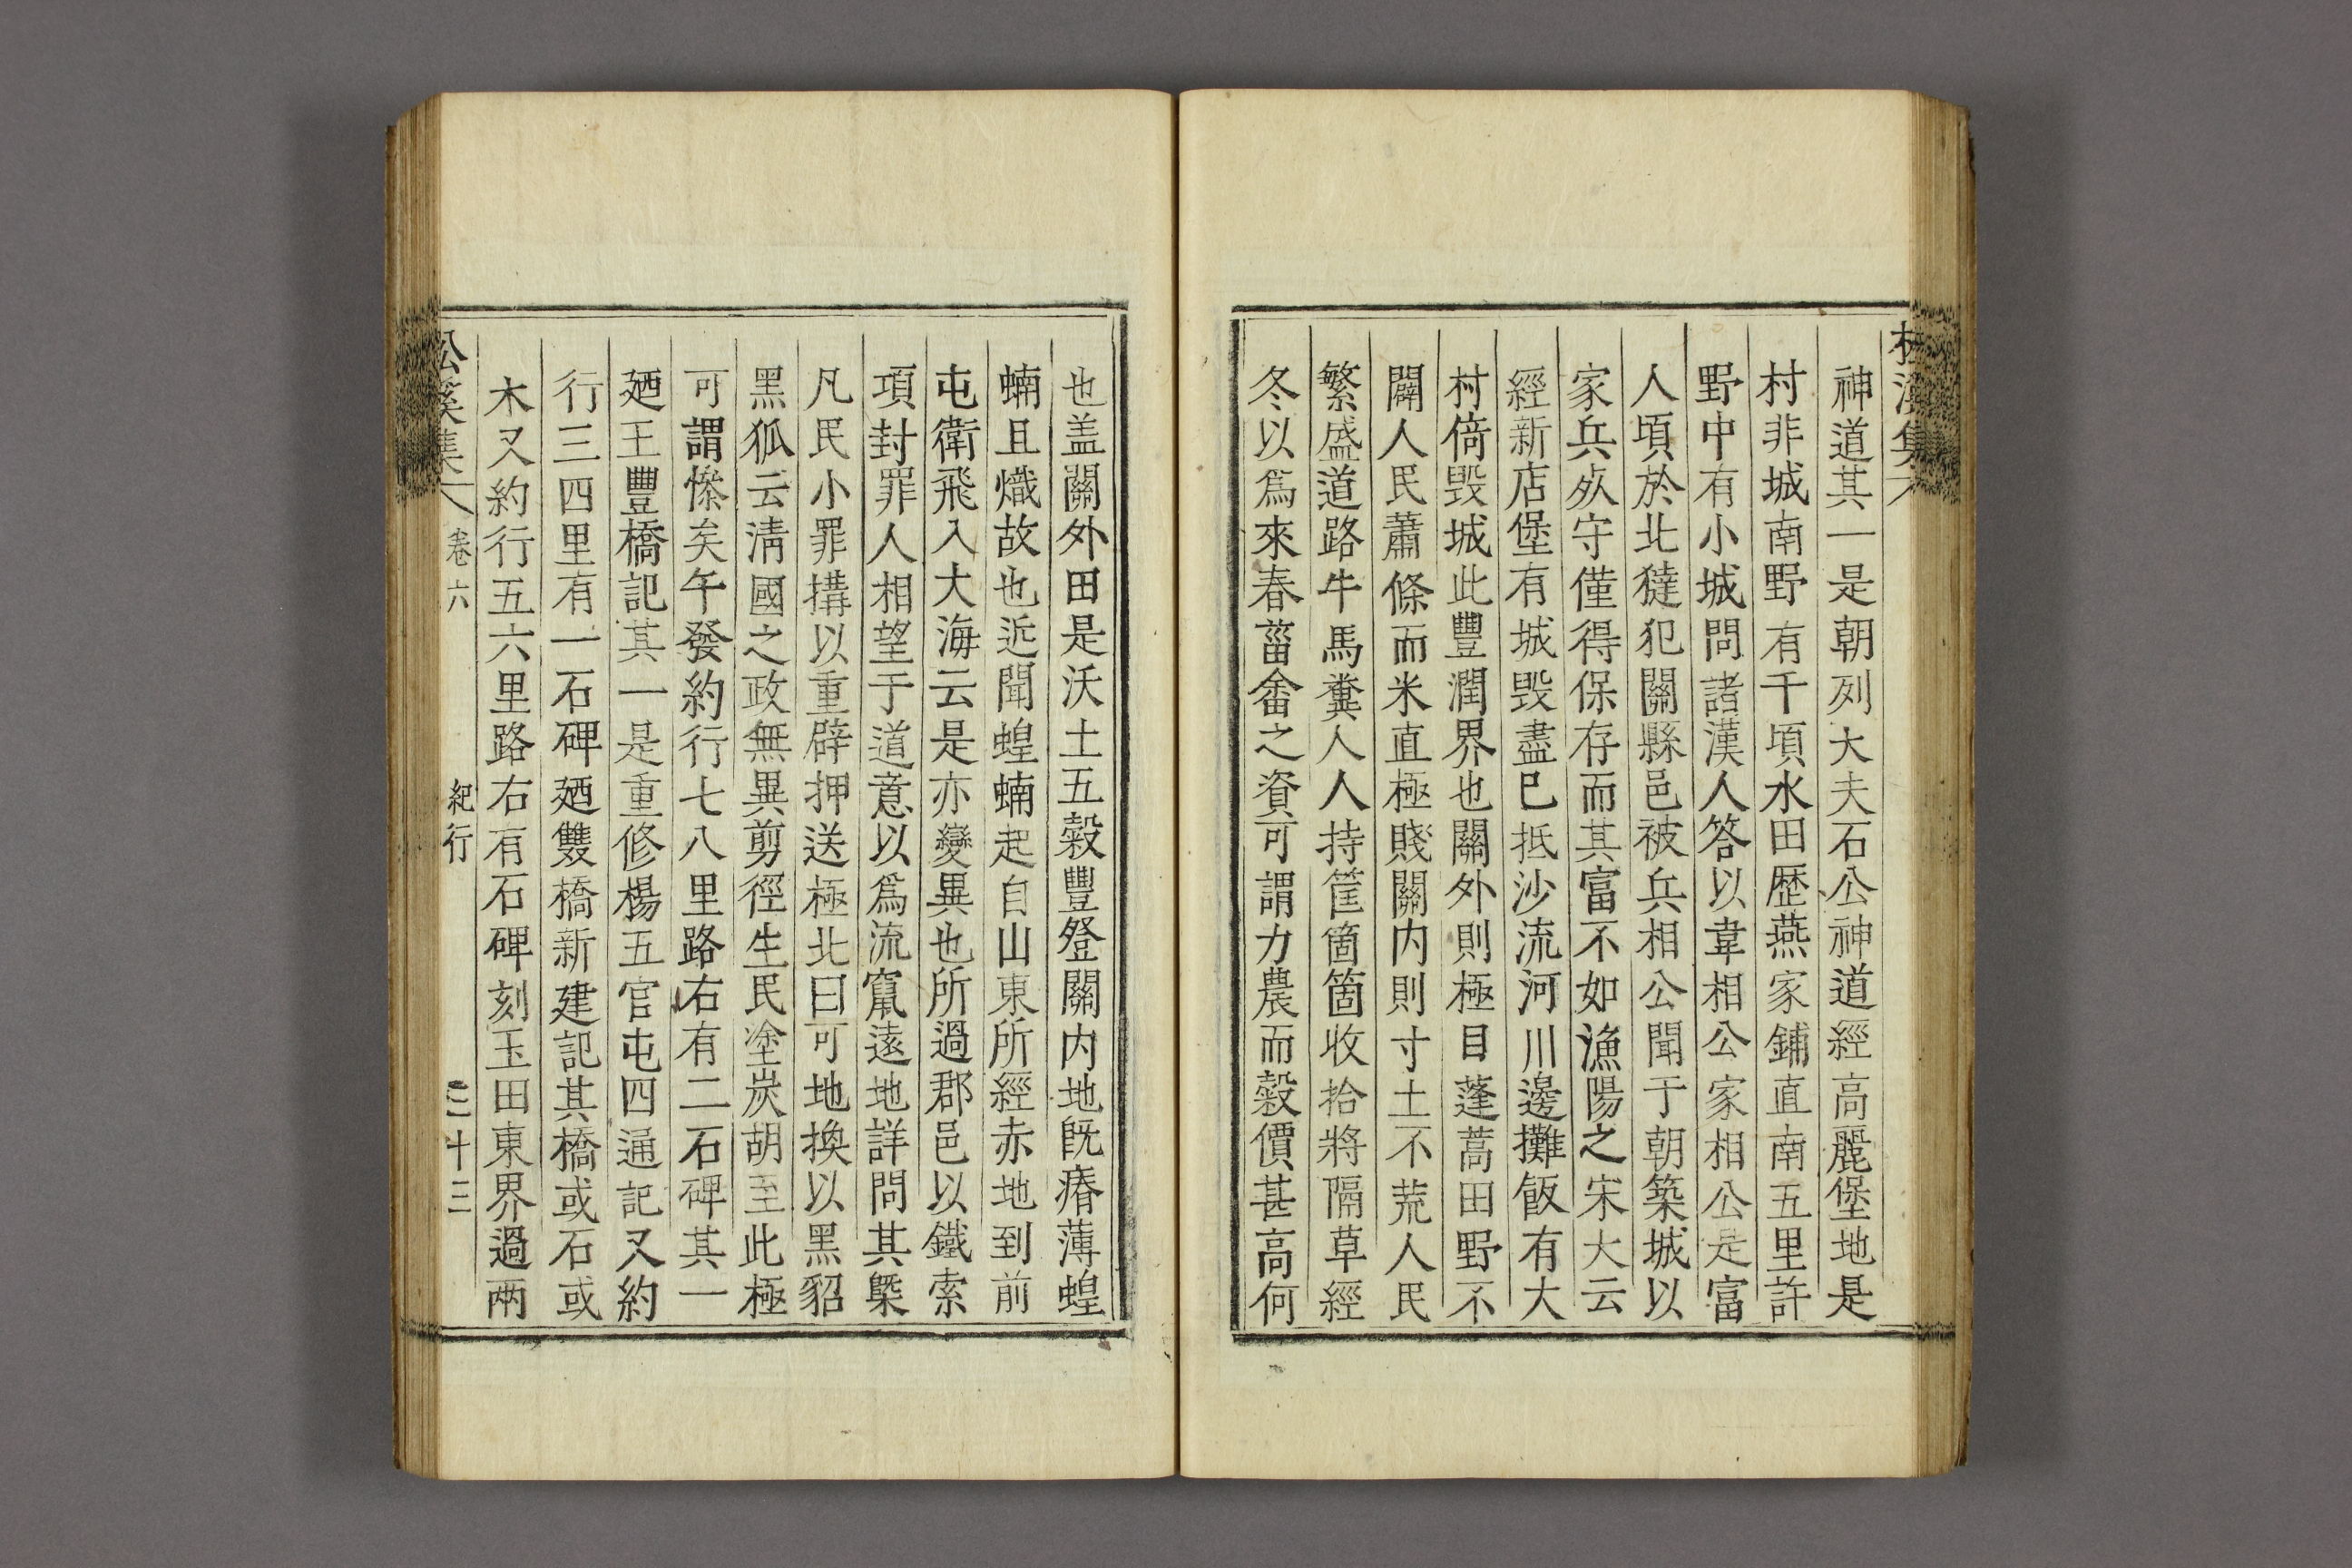 松溪集
神道其一是朝列大夫石公神道經高麗堡地是
村非城南野有千頃水田歴燕家鋪直南五里許
野中有小城問諸漢人答以韋相公家相公是富
人頃於北㺚犯關縣邑被兵相公聞于朝築城以
家兵㱕守僅得保存而其富不如漁陽之宋大云
經新店堡有城毁盡已抵沙流河川邊攤飯有大
村倚毁城此豐潤界也關外則極目蓬蒿田野不
闢人民蕭條而米直極賤關内則寸土不荒人民
繁盛道路牛馬糞人人持筐箇箇收拾將隔草經
冬以爲來春菑畬之資可謂力農而穀價甚高何
也盖關外田是沃土五穀豐登關内地旣瘠薄蝗
蝻且熾故也近聞蝗蝻起自山東所經赤地到前
屯衛飛入大海云是亦變異也所過郡邑以鐵索
項封罪人相望于道意以爲流竄遠地詳問其槩
凡民小罪搆以重辟押送極北曰可地換以黑貂
黑狐云淸國之政無異剪徑生民塗炭胡至此極
可謂慘矣午發約行七八里路右有二石碑其一
廼王豐橋記其一是重修楊五官屯四通記又約
行三四里有一石碑廼雙橋新建記其橋或石或
木又約行五六里路右有石碑刻玉田東界過兩
松溪集 卷六 紀行 三十三